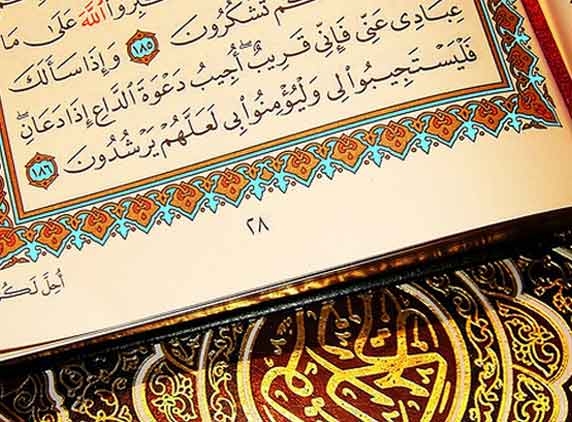 ـبِّرُوا۟ ٱللَّهَ عَلَىٰ مَا
ـكُمْ تَشْكُرُونَ ١٨٥ وَإِذَا سَأَلَكَ
عِبَادِى عَنِّى فَإِنِّى قَرِيبٌ ۖ أُجِيبُ دَعْوَةَ ٱلدَّاعِ إِذَا دَعَانِ ۖ
فَلْيَسْتَجِيبُوا۟ لِى وَلْيُؤْمِنُوا۟ بِى لَعَلَّهُمْ يَرْشُدُونَ ١٨٦
٢٨
أُحِلَّ لَكُمْ